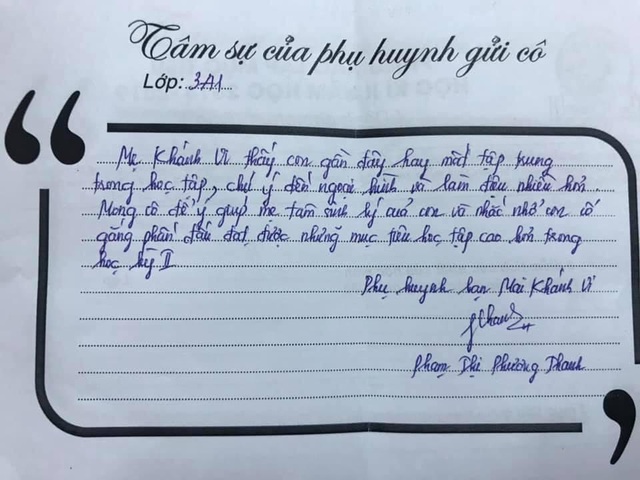 Tâm sự của phụ huynh gửi cô
Lớp: 3A1
Mẹ Khánh Vi thấy con gần đây hay mất tập trung
trong học tập, chú ý đến ngoại hình và làm điệu nhiều hơn.
Mong cô để ý giúp mẹ tâm sinh lý của con và nhắc nhở con cố
gắng phấn đấu đạt được những mục tiêu học tập cao hơn trong
học kỳ II
Phụ huynh bạn Mai Khánh Vi
Thanh
Phạm Thị Phương Thanh